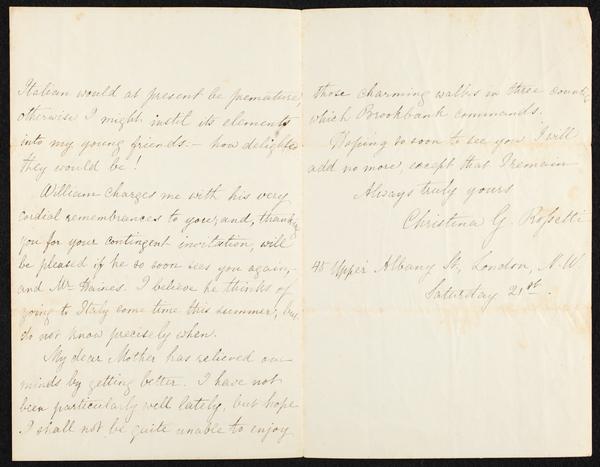 Italian would at present be premature,
otherwise I might instil its elements
into my young friends:– how delighted
they would be!
William charges me with his very
cordial remembrances to you; and, thanking
you for your contingent invitation, will
be pleased if he so soon sees you again,–
and Mr Haines. I believe he thinks of
going to Italy some time this summer, but
do not know precisely when.
My dear Mother has relieved our
minds by getting better. I have not
been particularly well lately, but hope
I shall not be quite unable to enjoy
those charming walks in three counties
which Brookbank commands.
Hoping so soon to see you I will
add no more, except that I remain
Always truly yours
Christina G. Rossetti
45 Upper Albany St., London, N.W.
Saturday 21st.